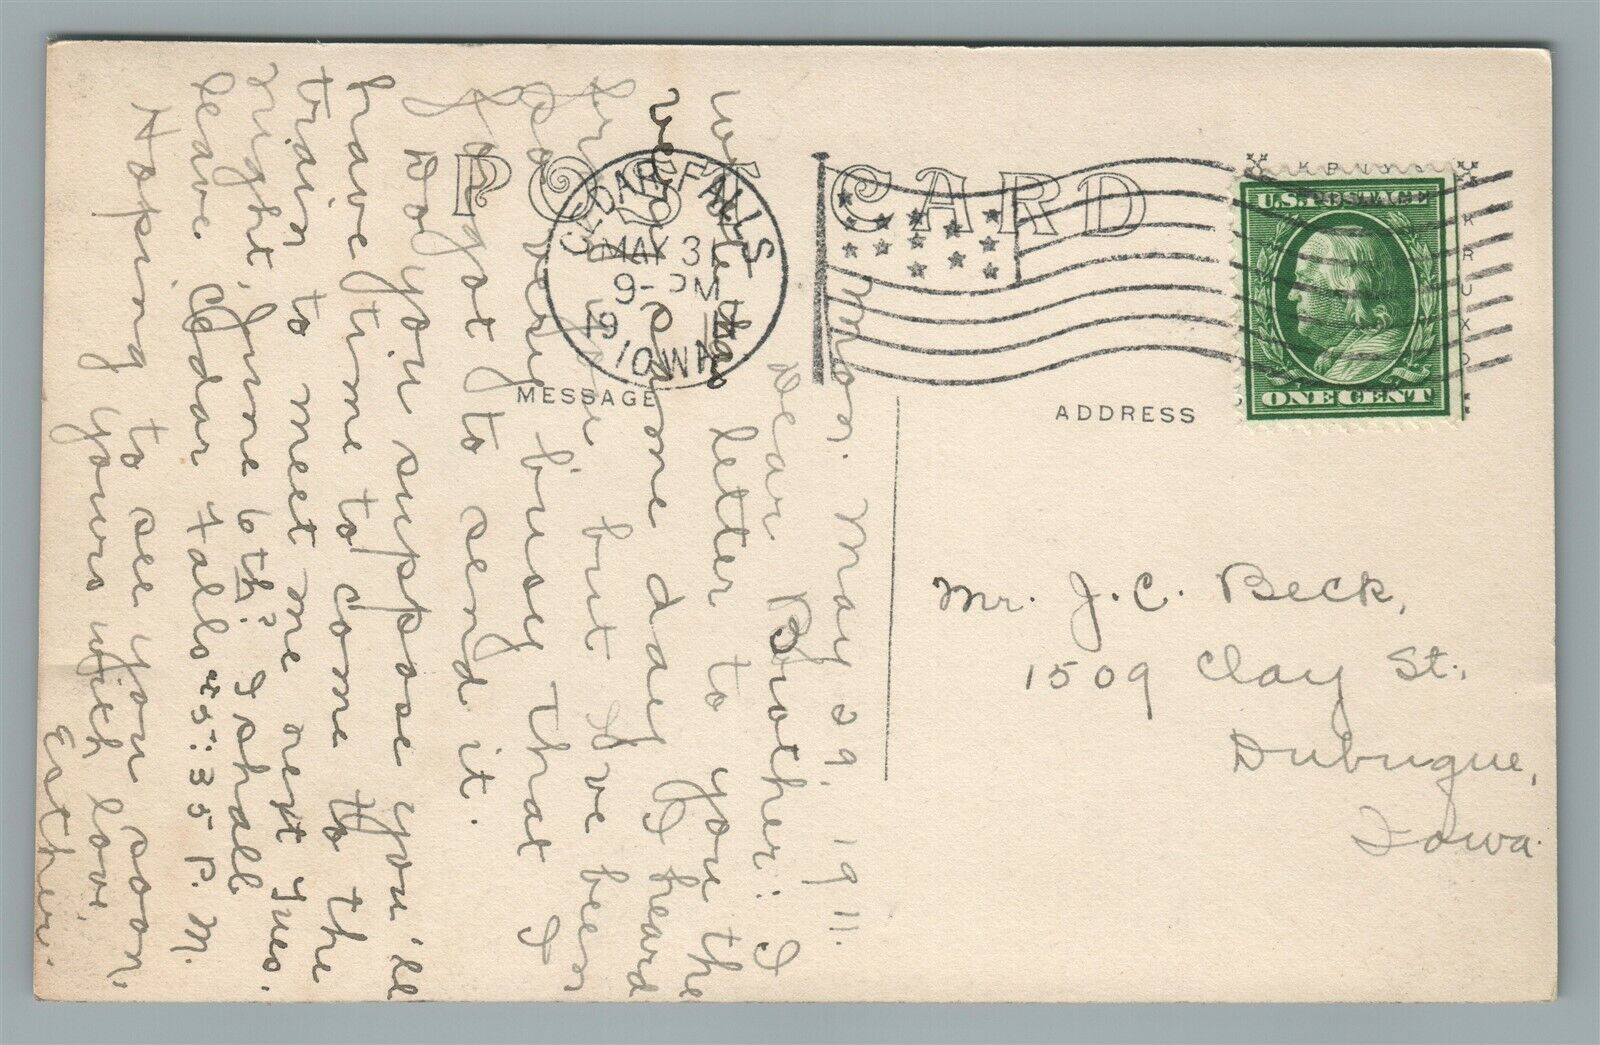 POST CARD
CEDAR FALLS
MAY 31
9-PM
1911
IOWA
MESSAGE
ADDRESS
U.S. POSTAGE
ONE CENT
KRUXO
Mon. May 29, 1911.
Dear Brother: I
wrote this letter to you the
very same day I heard
fr. you but I've been
so very busy that I
forgot to send it.
Do you suppose you'll
have time to come to the
train to meet me next Tues.
night, June 6th? I shall
leave Cedar Falls 5:35 P.M.
Hoping to see you soon,
yours with love,
Esther.
Mr. J. C. Beck,
1509 Clay St.,
Dubuque,
Iowa.